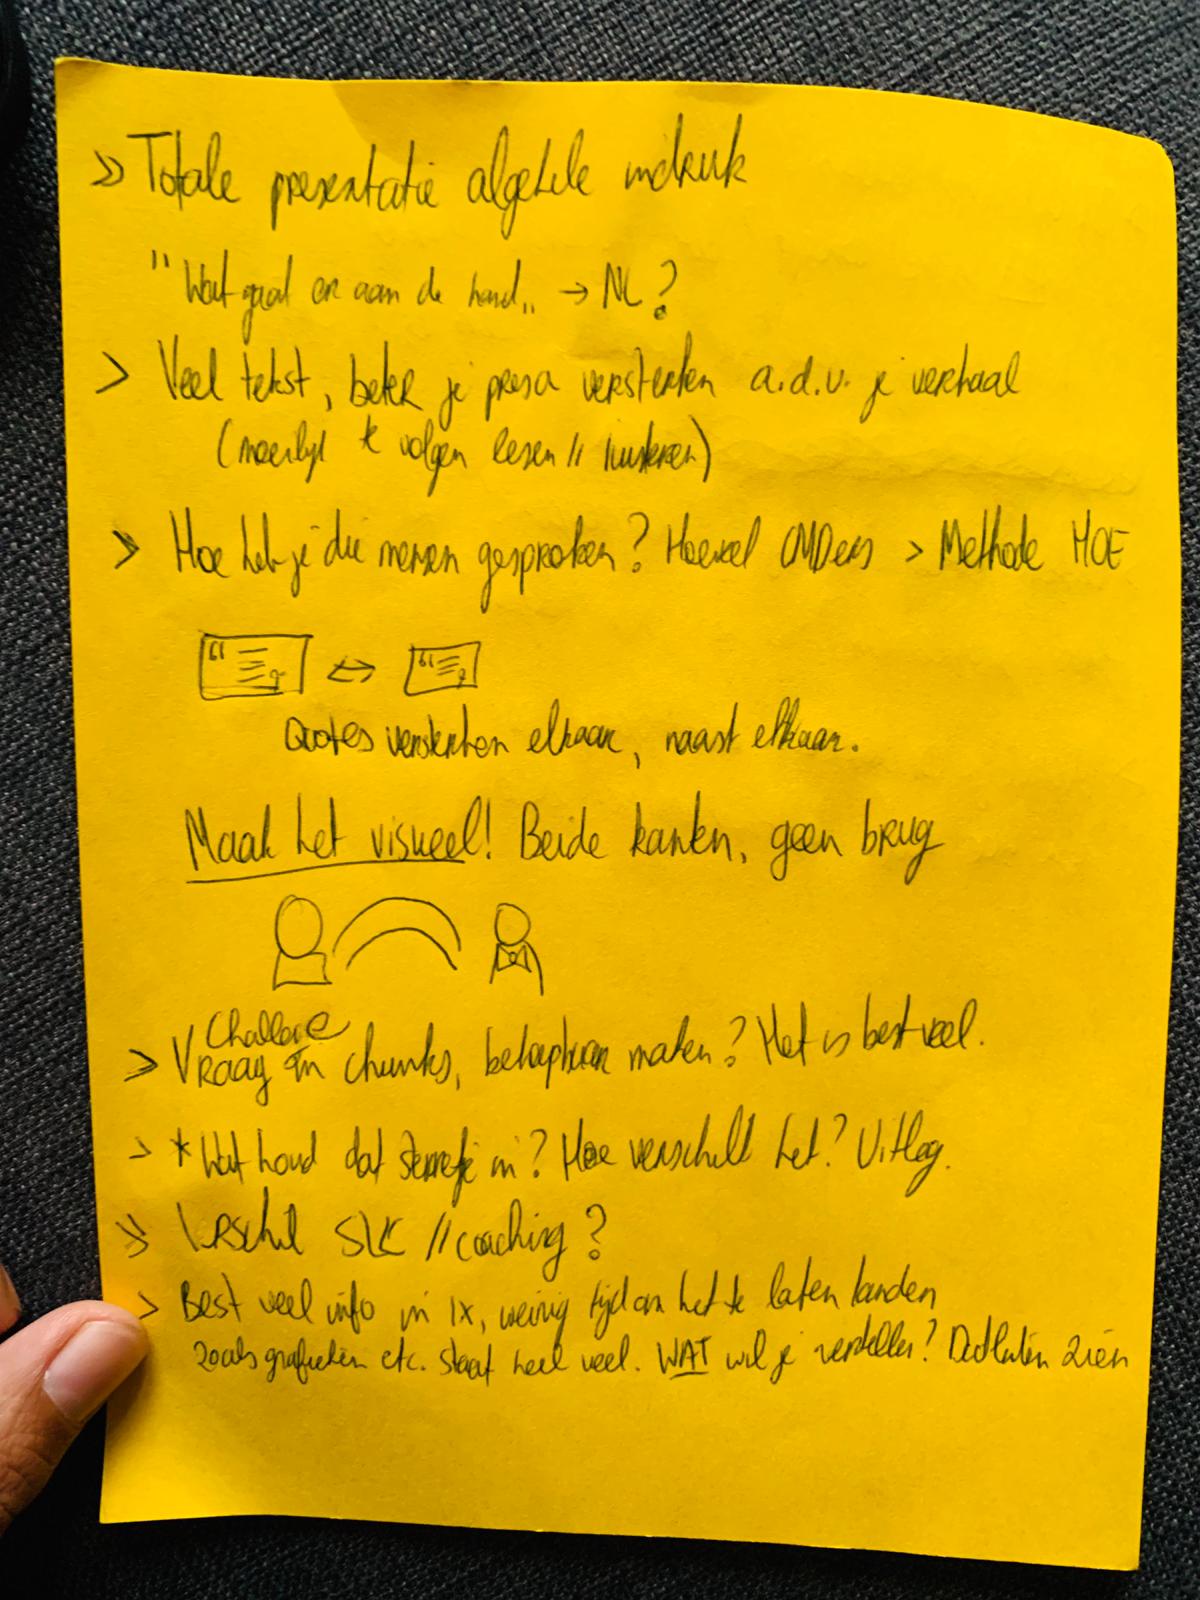 >> Totale presentatie algehele indruk
"Wat gaat er aan de hand" → NL?
> Veel tekst, beter je presa versterken a.d.v. je verhaal
(moeilijk te volgen lezen // luisteren)
> Hoe heb je die mensen gesproken? Hoeveel CMDers > Methode HOE
Quotes versterken elkaar, naast elkaar.
Maak het visueel! Beide kanten, geen brug
Challenge
> Vraag in chunks, behapbaar maken? Het is best veel.
> *Wat houd dat sterretje in? Hoe verschilt het? Uitleg.
>> Verschil SLC // coaching?
> Best veel info in 1x, weinig tijd om het te laten landen
zoals grafieken etc. staat heel veel. WAT wil je vertellen? Dat laten zien